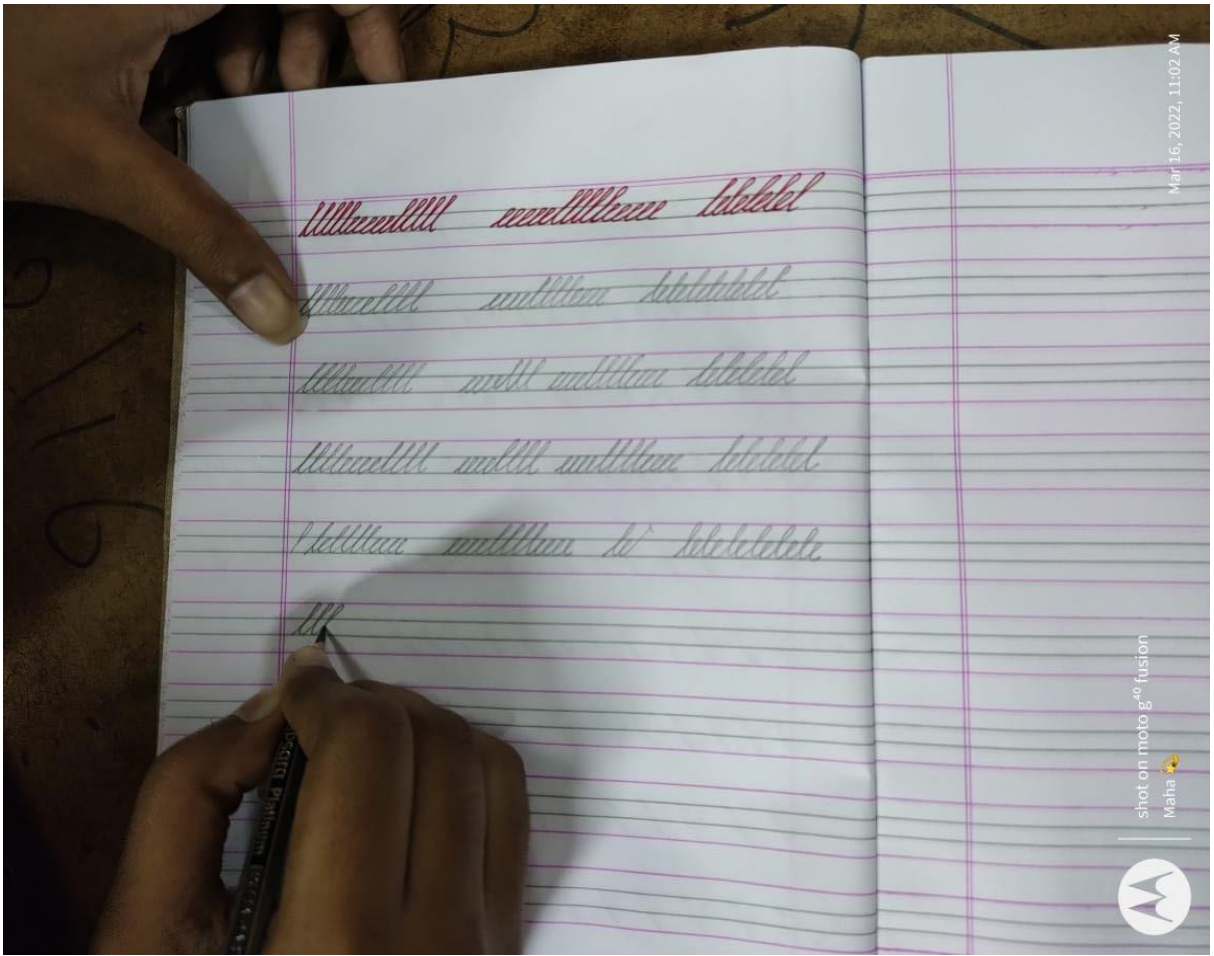 lllleeeellll eeeelllleeee lelelelel
lllleeellll eeelllleeee lelelelelel
lllleeellll eeelll eeelllleeee lelelelel
lllleeellll eeellll eeelllleeee lelelelel
l lelllleee eeelllleeee le lelelelelele
lll
Platinum
Mar 16, 2022, 11:02 AM
shot on moto g⁴⁰ fusion
Maha 💫